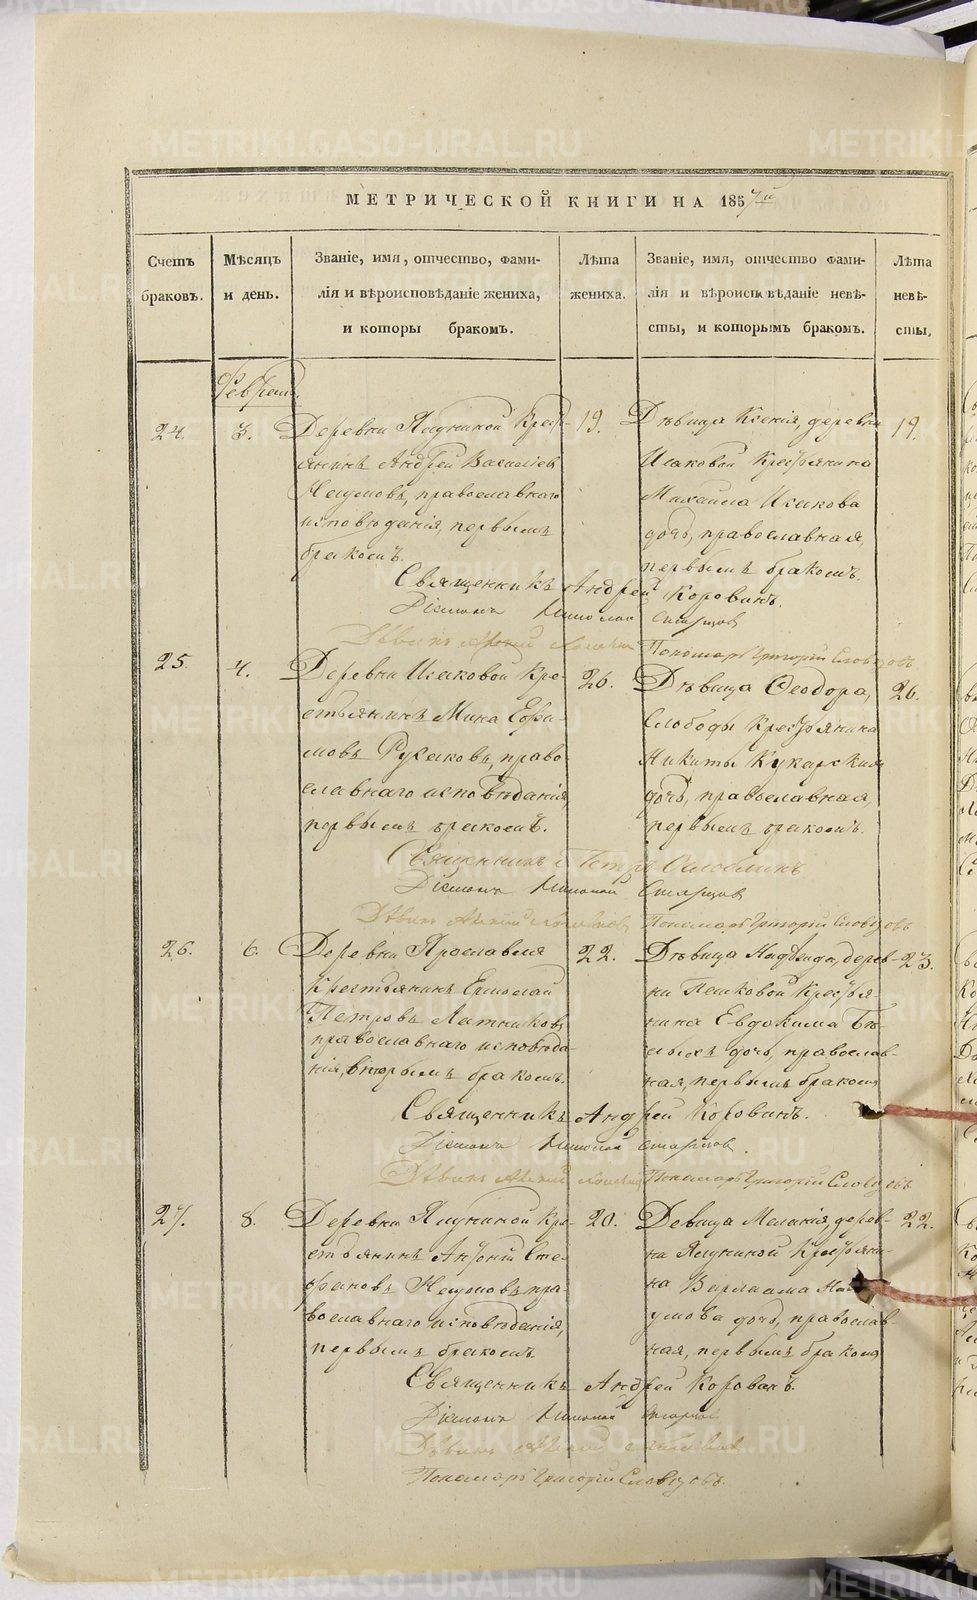 МЕТРИЧЕСКОЙ КНИГИ НА 1857й
Счетъ браковъ.
Мѣсяцъ и день.
Званіе, имя, отчество, фами-
лія и вѣроисповѣданіе жениха,
и которы бракомъ.
Лѣта жениха.
Званіе, имя, отчество фами-
лія и вѣроисповѣданіе невѣ-
сты, и которымъ бракомъ.
Лѣта невѣ-
сты,
24.
3.
Крест-
янинъ Андрей Васильевъ
православнаго
исповѣданія, первымъ
бракомъ.
19.
Дѣвица Ксенія, деревни
Исаковой Крестьянина
Михаила Исакова
дочь, православная,
первымъ бракомъ.
19.
Священникъ Андрей Корованъ.
Діаконъ Николай Старцов
Пономарь Григорій Словцовъ
25.
4.
Деревни Исаковой Кре-
стьянинъ Мина Ефи-
мовъ Русаковъ, право
славнаго исповѣданія
первымъ бракомъ.
26.
Дѣвица Феодора,
Слободы Крестьянина
Никиты Кукарскихъ
дочь, православная,
первымъ бракомъ.
26.
Священникъ Петръ
Діаконъ Николай Старцов
Пономарь Григорій Словцовъ
26.
6.
Деревни Ярославля
Крестьянинъ Ермолай
Петровъ Латниковъ
православнаго исповѣда-
нія, вторымъ бракомъ.
22.
Дѣвица Надежда, дерев-
ни Пешковой Крестья-
нина Евдокима Бѣ-
лыхъ дочь, православ-
ная, первымъ бракомъ
23.
Священникъ Андрей Корованъ.
Діаконъ Николай Старцов.
Пономарь Григорій Словцовъ
27.
8.
Деревни Ялуниной Кре-
стьянинъ Антоній Сте-
фановъ Наумовъ пра-
вославнаго исповѣданія,
первымъ бракомъ
20.
Девица Меланія, дерев-
на Ялуниной Крестьяни-
на Варлаама На-
умова дочь, православ-
ная, первымъ бракомъ
22.
Священникъ Андрей Корованъ.
Діаконъ Николай Старцов
Пономарь Григорій Словцовъ.
METRIKI.GASO-URAL.RU